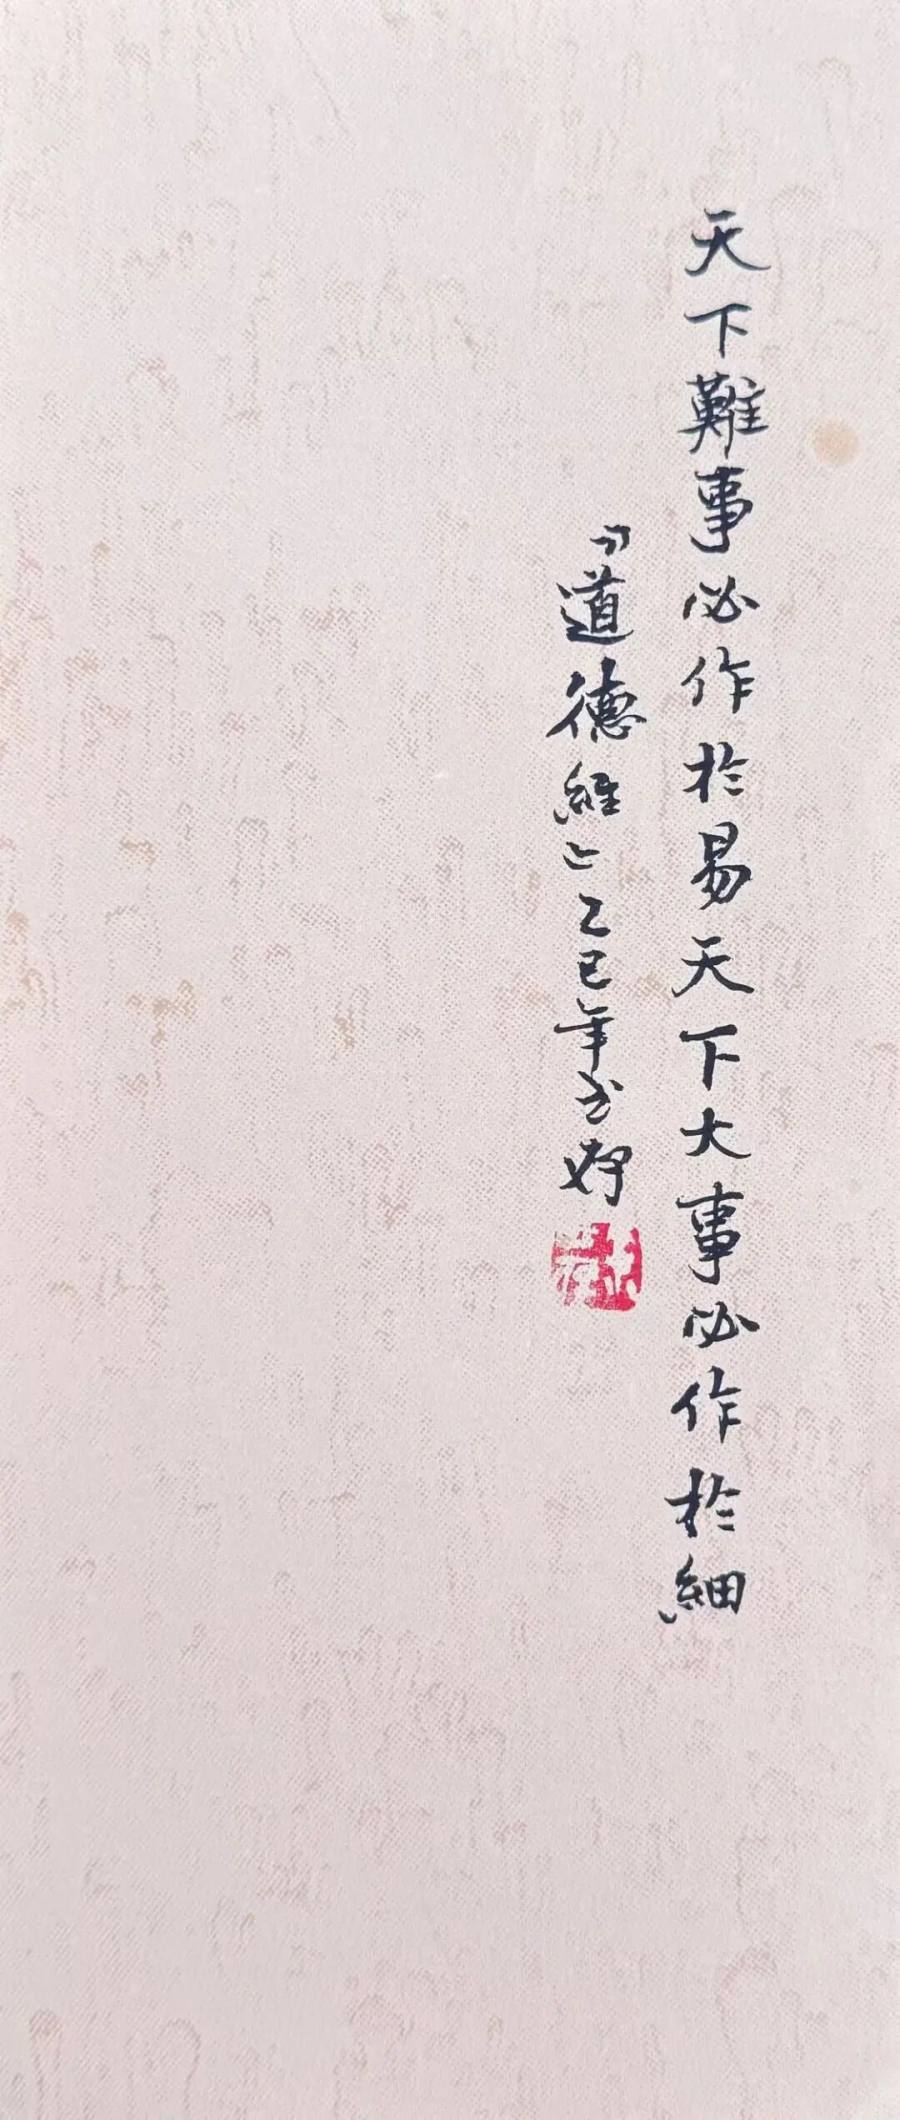 天下難事必作於易天下大事必作於細
《道德經》乙巳年书